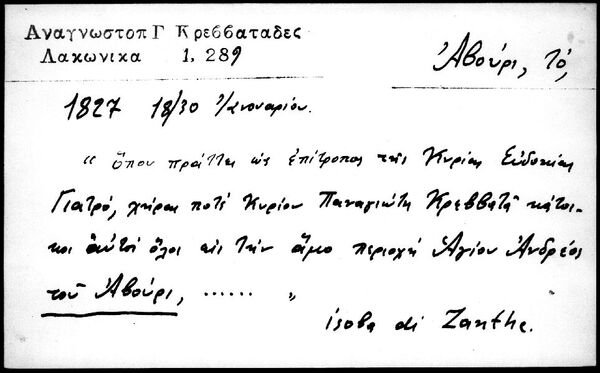 Αναγνωστοπ Γ Κρεββαταδες
Λακωνικα 1, 289
Ἀβούρι, Τό,
1827 18/30 Ἰανουαρίου.
" ὅπου πράττει ὡς ἐπίτροπος τῆς Κυρίας Εὐδοκίας
Γιατρό, χήρας ποτὲ Κυρίου Παναγιώτη Κρεββατᾶ κάτοι-
κοι αὐτοὶ ὅλοι εἰς τὴν ἄμο περιοχὴ Ἁγίου Ἀνδρέος
τοῦ Ἀβούρι, ...... "
isola di Zanthe.